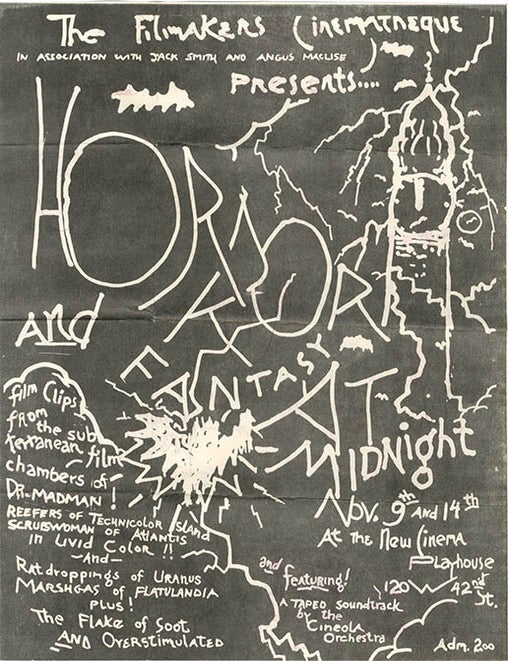 The Filmakers Cinematheque
IN ASSOCIATION WITH JACK SMITH AND ANGUS MACLISE
Presents....
HORROR
And
FANTASY
AT
MIDNIGHT
Film Clips
from the sub
terranean film
chambers of
DR. MADMAN!
REEFERS OF TECHNICOLOR ISLAND
SCRUBWOMAN OF ATLANTIS
IN LIVID COLOR!!
—And—
Ratdroppings of Uranus
MARSHGAS OF FLATULANDIA
PLUS!
The Flake of Soot
AND OVERSTIMULATED
Nov. 9th AND 14th
At the New Cinema
Playhouse
120 W 42nd St.
and featuring!
A TAPED SOUNDTRACK
by the
CINEOLA
Orchestra
Adm. 2.00